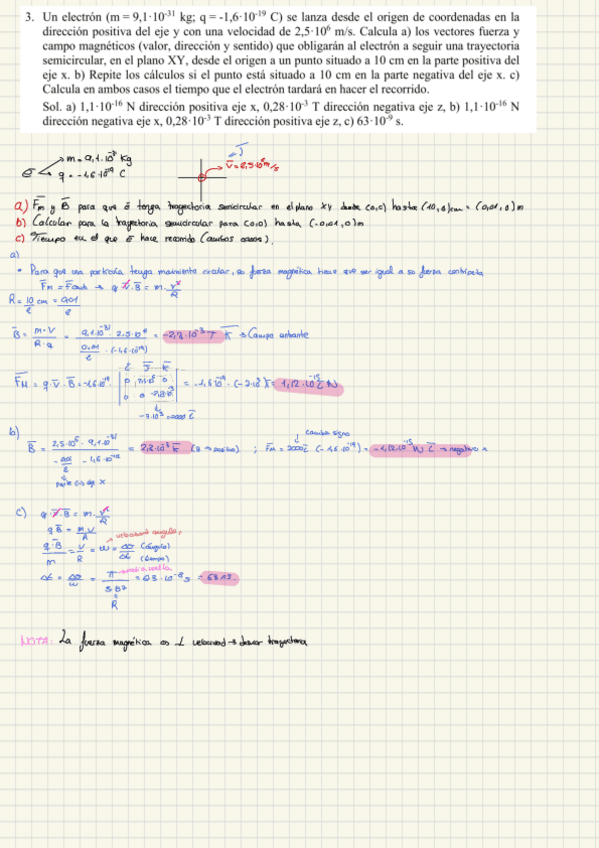 3. Un electrón (m = 9,1·10⁻³¹ kg; q = -1,6·10⁻¹⁹ C) se lanza desde el origen de coordenadas en la
dirección positiva del eje y con una velocidad de 2,5·10⁶ m/s. Calcula a) los vectores fuerza y
campo magnéticos (valor, dirección y sentido) que obligarán al electrón a seguir una trayectoria
semicircular, en el plano XY, desde el origen a un punto situado a 10 cm en la parte positiva del
eje x. b) Repite los cálculos si el punto está situado a 10 cm en la parte negativa del eje x. c)
Calcula en ambos casos el tiempo que el electrón tardará en hacer el recorrido.
Sol. a) 1,1·10⁻¹⁶ N dirección positiva eje x, 0,28·10⁻³ T dirección negativa eje z, b) 1,1·10⁻¹⁶ N
dirección negativa eje x, 0,28·10⁻³ T dirección positiva eje z, c) 63·10⁻⁹ s.
m = 9,1·10⁻³¹ kg
q = -1,6·10⁻¹⁹ C
a) F̄m y B̄ para que ē tenga trayectoria semicircular en el plano XY desde (0,0) hasta (10,0)cm = (0,01,0)m
b) Calcular para la trayectoria semicircular para (0,0) hasta (-0,01,0)m
c) Tiempo en el que ē hace recorrido (ambos casos).
a)
• Para que una partícula tenga movimiento circular, su fuerza magnética tiene que ser igual a su fuerza centrípeta
q·v·B = m·v²/R
R = 10 cm/2 = 0,01/2
B̄ = m·v/R·q = = -2,2·10⁻³ T k̄ → Campo entrante
F̄m = q·v̄·B̄ = -1,6·10⁻¹⁹ = 1,12·10⁻¹⁵ ī N
b)
B̄ = 2,5·10⁶ · 9,1·10⁻³¹ = 2,2·10⁻³ k̄ (B → positivo) ;
cambia signo
= -1,12·10⁻¹⁵ N ī → negativo x
parte (-) eje x
c) q·v·B = m·v²/R
q·B = m·v/R
velocidad angular
q·B/m = v/R = ω = Δθ/Δt (ángulo) (tiempo)
media vuelta
Δt = Δθ/ω = = 63ns.
NOTA: La fuerza magnética es ⊥ velocidad → desvía trayectoria